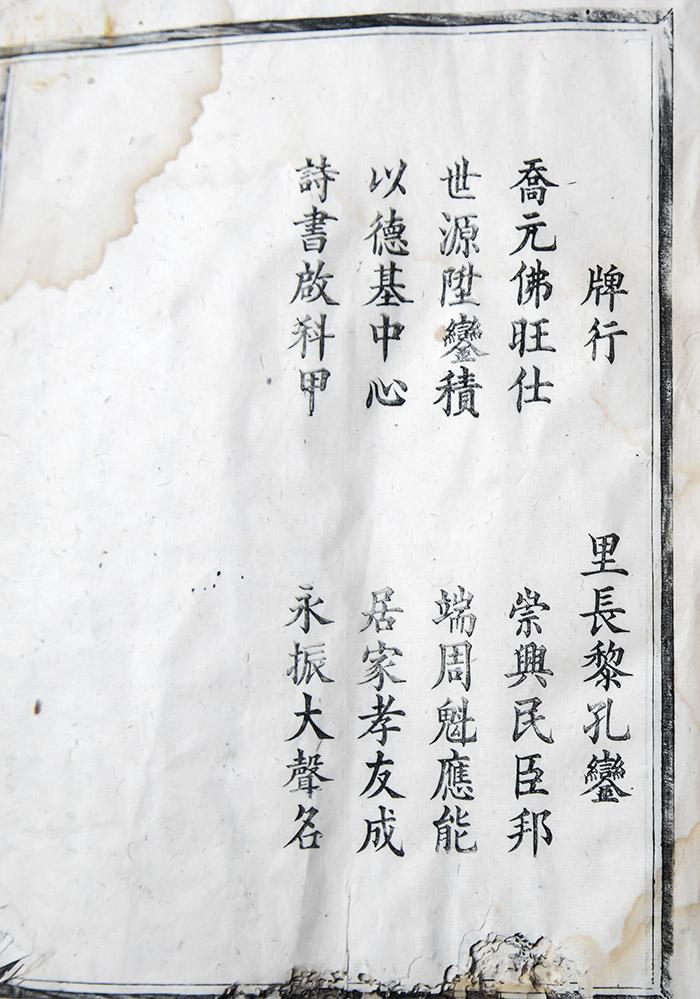 牌行 里長黎孔鑾
喬元佛旺仕 崇興民臣邦
世源陞鑾積 端周魁應能
以德基中心 居家孝友成
詩書啟科甲 永振大聲名